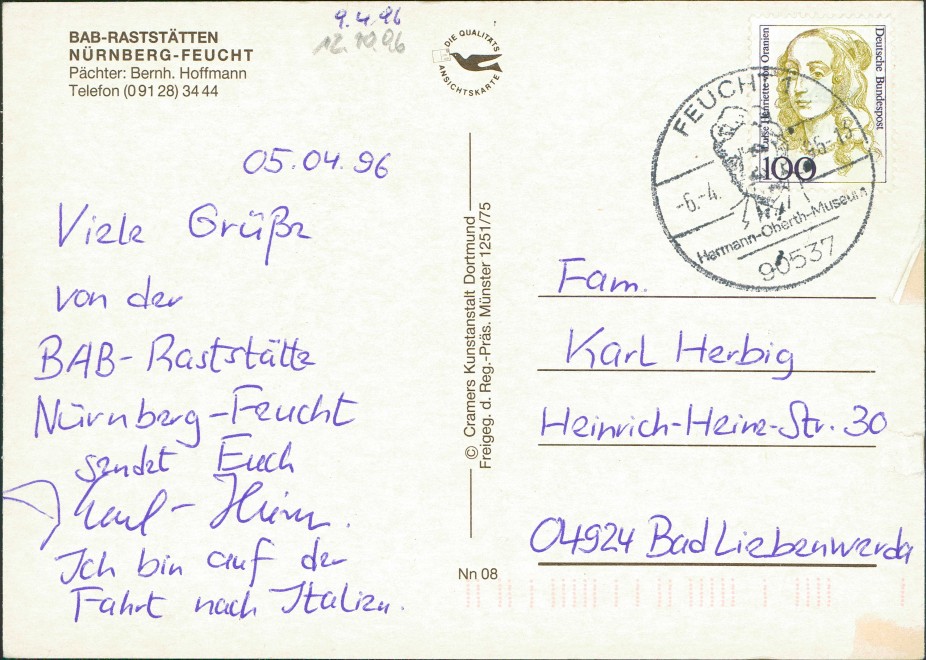 BAB-RASTSTÄTTEN
NÜRNBERG-FEUCHT
Pächter: Bernh. Hoffmann
Telefon (0 91 28) 34 44
9.4.96
12.10.96
DIE QUALITÄTS
ANSICHTSKARTE
Luise Henriette von Oranien
Deutsche Bundespost
100
FEUCHT
-6.-4.
Hermann-Oberth-Museum
90537
05.04.96
Viele Grüße
von der
BAB-Raststätte
Nürnberg-Feucht
sendet Euch
Karl-Heinz.
Ich bin auf der
Fahrt nach Italien.
© Cramers Kunstanstalt Dortmund
Freigeg. d. Reg.-Präs. Münster 1251/75
Nn 08
Fam.
Karl Herbig
Heinrich-Heine-Str. 30
04924 Bad Liebenwerda